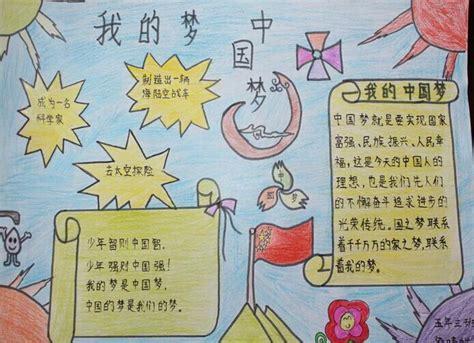 我的梦 中国梦
成为一名
科学家
制造出一辆
海陆空战车
去太空探险
我的中国梦
中国梦就是要实现国家
富强、民族振兴、人民幸
福,这是今天的中国人的
理想,也是我们先人们
的不懈奋斗追求进步的
光荣传统。国之梦联系
着千千万万的家之梦,联系
着我的梦。
中
少年智则中国智,
少年强则中国强!
我的梦是中国梦,
中国的梦是我们的梦。
五年三班